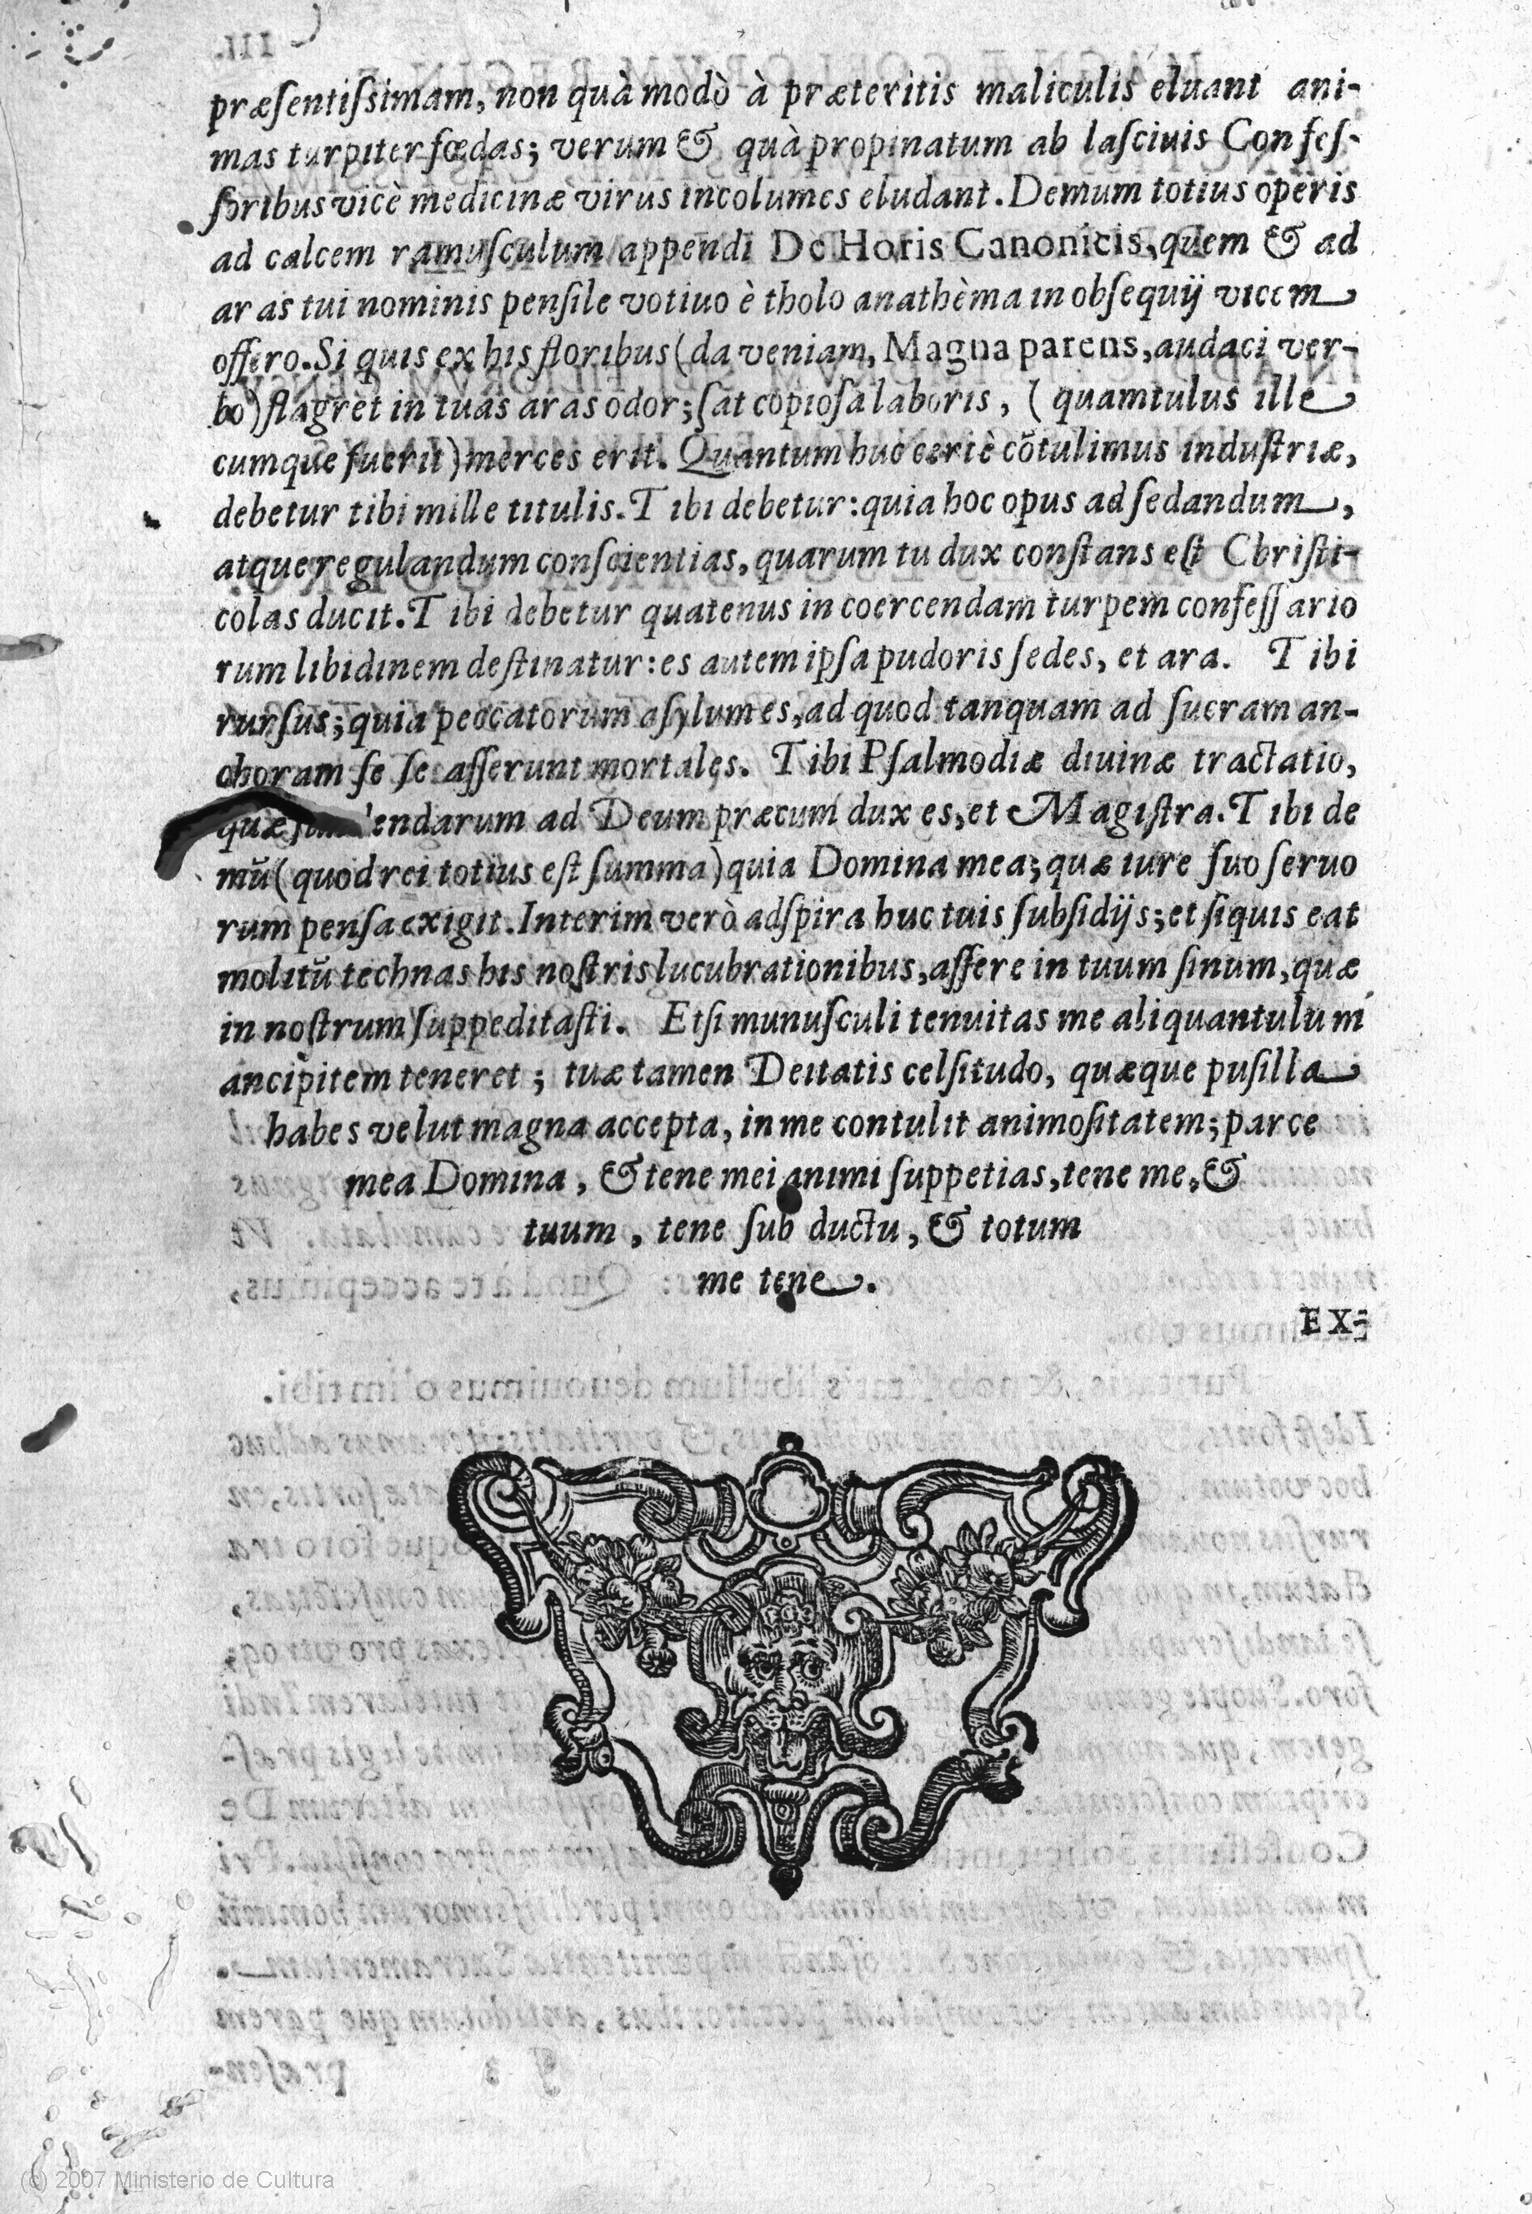 præſentiſsimam, non quà modò à præteritis maliculis eluant ani-
mas turpiter fœdas; verum & quà propinatum ab laſciuis Confeſ-
ſoribus vicè medicinæ virus incolumes eludant. Demum totius operis
ad calcem ramuſculum appendi De Horis Canonicis, quem & ad
aras tui nominis penſile votiuo è tholo anathèma in obſequij vicem
offero. Si quis ex his floribus (da veniam, Magna parens, audaci ver-
bo) flagret in tuas aras odor; ſat copioſa laboris, (quamtulus ille
cumque fuerit) merces erit. Quantum huc certè cōtulimus induſtriæ,
debetur tibi mille titulis. Tibi debetur: quia hoc opus ad ſedandum,
atque regulandum conſcientias, quarum tu dux conſtans eſt Chriſti-
colas ducit. Tibi debetur quatenus in coercendam turpem confeſſario
rum libidinem deſtinatur: es autem ipſa pudoris ſedes, et ara. Tibi
rurſus; quia peccatorum aſylum es, ad quod tanquam ad ſacram an-
choram ſe ſe aſſerunt mortales. Tibi Pſalmodiæ diuinæ tractatio,
quæ endarum ad Deum præcum dux es, et Magiſtra. Tibi de
mũ (quod rei totius eſt ſumma) quia Domina mea; quæ iure ſuo ſeruo
rum penſa exigit. Interim verò adſpira huc tuis ſubſidijs; et ſiquis eat
molitũ technas his noſtris lucubrationibus, aſſere in tuum ſinum, quæ
in noſtrum ſuppeditaſti. Etſi munuſculi tenuitas me aliquantulum
ancipitem teneret; tuæ tamen Deitatis celſitudo, quæque puſilla
habes velut magna accepta, in me contulit animoſitatem; parce
mea Domina, & tene mei animi ſuppetias, tene me, &
tuum, tene ſub ductu, & totum
me tene.
EX-
(c) 2007 Ministerio de Cultura